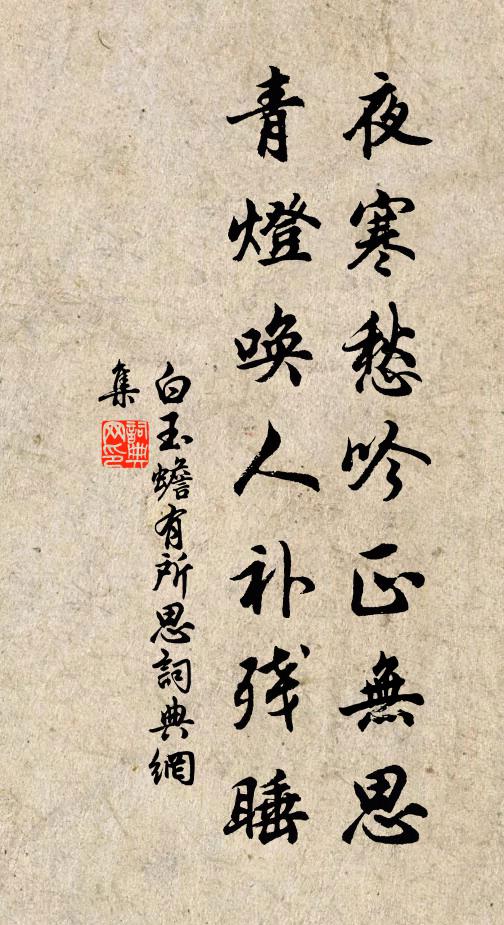 夜寒愁吟正無思
青燈唤人补残睡
白玉蟾有所思詞典網
集
詞典网印